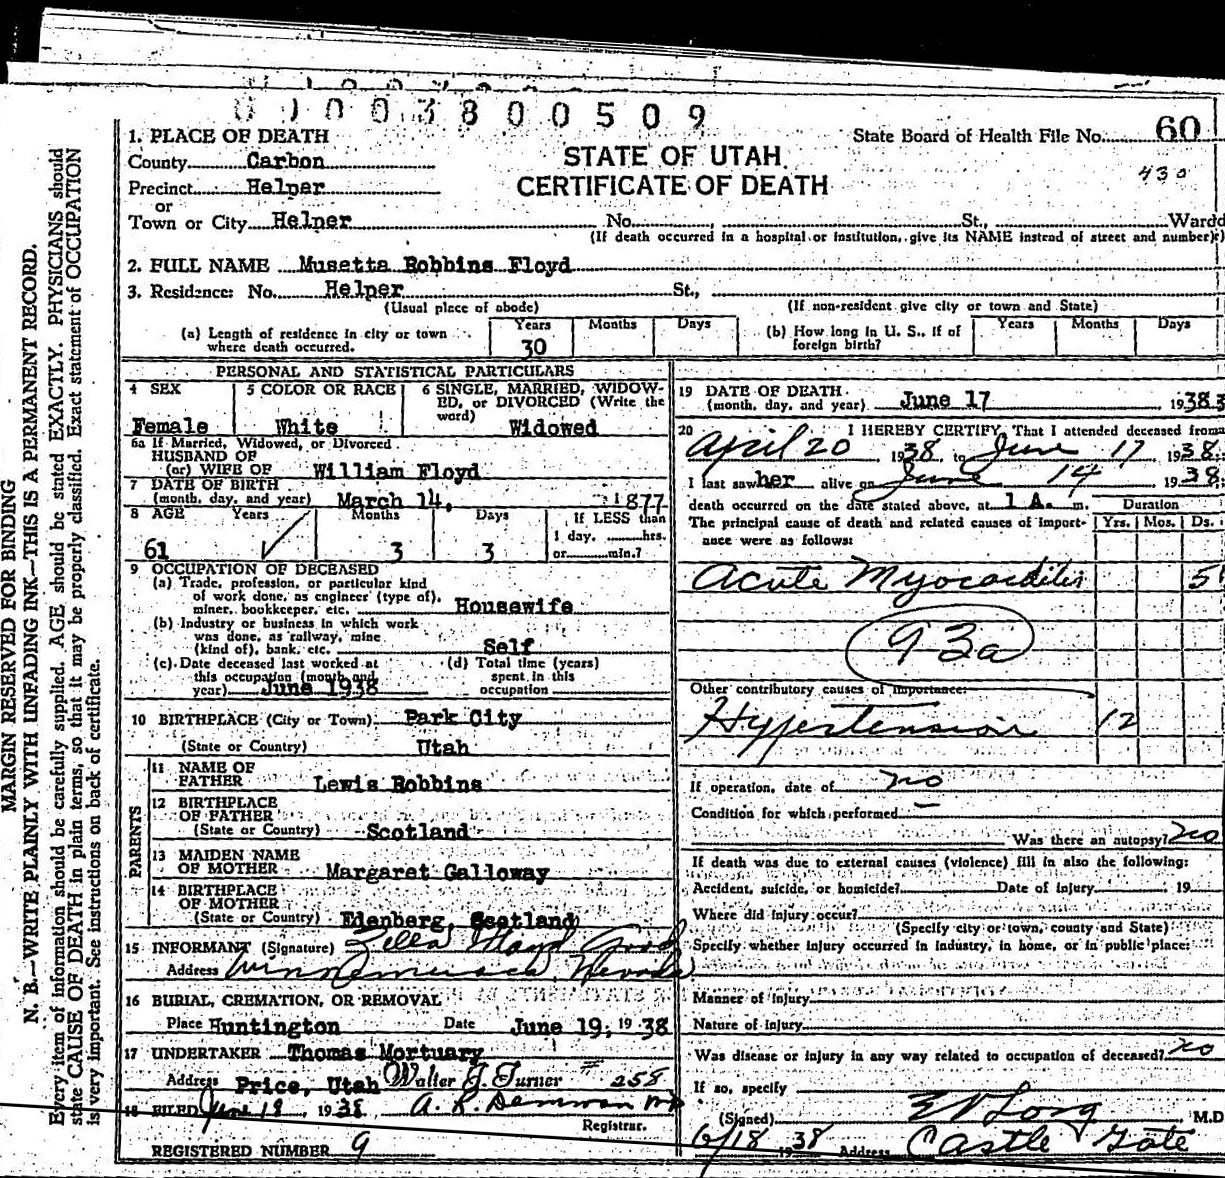 0 1 0 0 3 8 0 0 5 0 9
State Board of Health File No. 60
430
STATE OF UTAH
CERTIFICATE OF DEATH
1. PLACE OF DEATH
County Carbon
Precinct Helper
or
Town or City Helper No. St., Ward
(If death occurred in a hospital or institution, give its NAME instead of street and number)
2. FULL NAME Musetta Robbins Floyd
3. Residence: No. Helper St.,
(Usual place of abode) (If non-resident give city or town and State)
(a) Length of residence in city or town where death occurred. Years 30 Months Days
(b) How long in U. S., if of foreign birth? Years Months Days
PERSONAL AND STATISTICAL PARTICULARS
4 SEX
Female
5 COLOR OR RACE
White
6 SINGLE, MARRIED, WIDOW-
ED, or DIVORCED (Write the
word)
Widowed
6a If Married, Widowed, or Divorced
HUSBAND OF
(or) WIFE OF William Floyd
7 DATE OF BIRTH
(month, day, and year) March 14, 1877
8 AGE Years Months Days If LESS than
1 day, hrs.
61 3 3 or min.?
9 OCCUPATION OF DECEASED
(a) Trade, profession, or particular kind
of work done, as engineer (type of),
miner, bookkeeper, etc. Housewife
(b) Industry or business in which work
was done, as railway, mine
(kind of), bank, etc. Self
(c) Date deceased last worked at
this occupation (month and
year) June 1938
(d) Total time (years)
spent in this
occupation
10 BIRTHPLACE (City or Town) Park City
(State or Country) Utah
PARENTS
11 NAME OF
FATHER Lewis Robbins
12 BIRTHPLACE
OF FATHER
(State or Country) Scotland
13 MAIDEN NAME
OF MOTHER Margaret Galloway
14 BIRTHPLACE
OF MOTHER
(State or Country) Edenberg, Scotland
15 INFORMANT (Signature) Zella Floyd
Address Winnemucca, Nevada
16 BURIAL, CREMATION, OR REMOVAL
Place Huntington Date June 19, 1938
17 UNDERTAKER Thomas Mortuary
Address Price, Utah Walter J. Turner # 258
18 FILED June 18, 1938 A. R. Demman MD
Registrar.
REGISTERED NUMBER 9
19 DATE OF DEATH
(month, day, and year) June 17 1938
20 I HEREBY CERTIFY, That I attended deceased from
April 20 1938, to June 17 1938.
I last saw her alive on June 14 1938
death occurred on the date stated above, at 1 A. m.
Duration
The principal cause of death and related causes of import-
ance were as follows:
Yrs. Mos. Ds.
Acute Myocarditis 5
93a
Other contributory causes of importance:
Hypertension 12
If operation, date of no
Condition for which performed —
Was there an autopsy? no
If death was due to external causes (violence) fill in also the following:
Accident, suicide, or homicide? Date of injury , 19
Where did injury occur?
(Specify city or town, county and State)
Specify whether injury occurred in industry, in home, or in public place:
Manner of injury
Nature of injury
Was disease or injury in any way related to occupation of deceased? no
If so, specify
(Signed) E V Long M.D.
6/18 1938 Address Castle Gate
MARGIN RESERVED FOR BINDING
N. B.—WRITE PLAINLY WITH UNFADING INK—THIS IS A PERMANENT RECORD.
Every item of information should be carefully supplied. AGE should be stated EXACTLY. PHYSICIANS should
state CAUSE OF DEATH in plain terms, so that it may be properly classified. Exact statement of OCCUPATION
is very important. See instructions on back of certificate.